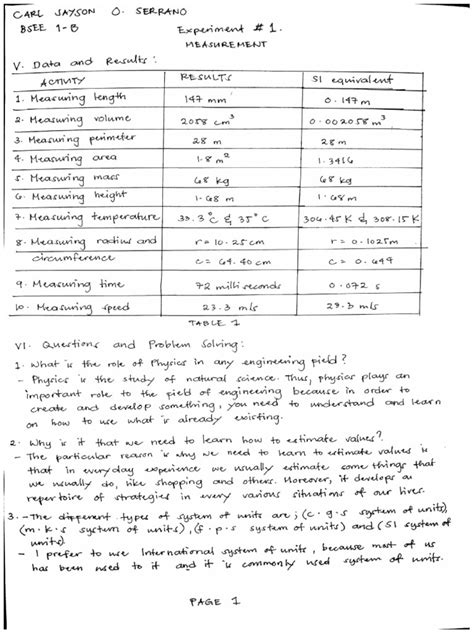 CARL JAYSON O. SERRANO
BSEE 1-B
Experiment # 1.
MEASUREMENT
V. Data and Results:
ACTIVITY RESULTS SI equivalent
1. Measuring length 147 mm 0.147 m
2. Measuring volume 2058 cm³ 0.002058 m³
3. Measuring perimeter 28 m 28 m
4. Measuring area 1.8 m² 1.3416
5. Measuring mass 68 kg 68 kg
6. Measuring height 1.68 m 1.68 m
7. Measuring temperature 33.3°C & 35°C 306.45 K & 308.15 K
8. Measuring radius and circumference r = 10.25 cm r = 0.1025 m
c = 64.40 cm c = 0.644
9. Measuring time 72 milliseconds 0.072 s
10. Measuring speed 23.3 m/s 23.3 m/s
TABLE 1
VI. Questions and Problem Solving:
1. What is the role of Physics in any engineering field?
- Physics is the study of natural science. Thus, physics plays an
important role to the field of engineering because in order to
create and develop something, you need to understand and learn
on how to use what is already existing.
2. Why is it that we need to learn how to estimate values?
- The particular reason is why we need to learn to estimate values is
that in everyday experience we usually estimate some things that
we usually do, like shopping and others. Moreover, it develops a
repertoire of strategies in every various situations of our lives.
3. - The different types of system of units are; (c.g.s system of units),
(m.k.s system of units), (f.p.s system of units) and (SI system of
units)
- I prefer to use International system of units, because most of us
has been used to it and it is commonly used system of units.
PAGE 1